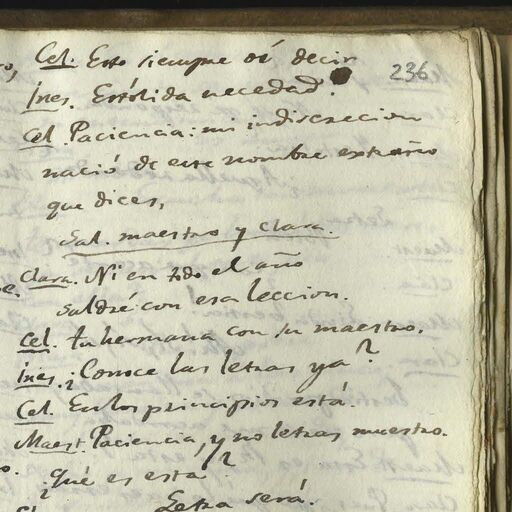 236
Cel. Esto siempre oí decir
Ines. Estólida necedad.
Cel. Paciencia: mi indiscrecion
nació de este nombre extraño
que dices,
Sal. maestro y Clara.
Clara. Ni en todo el año
saldré con esa leccion.
Cel. tu hermana con su maestro.
Ines. ¿Conoce las letras ya?
Cel. En los principios está.
Maest. Paciencia, y no letras muestro.
¿qué es esta?
Letra será.